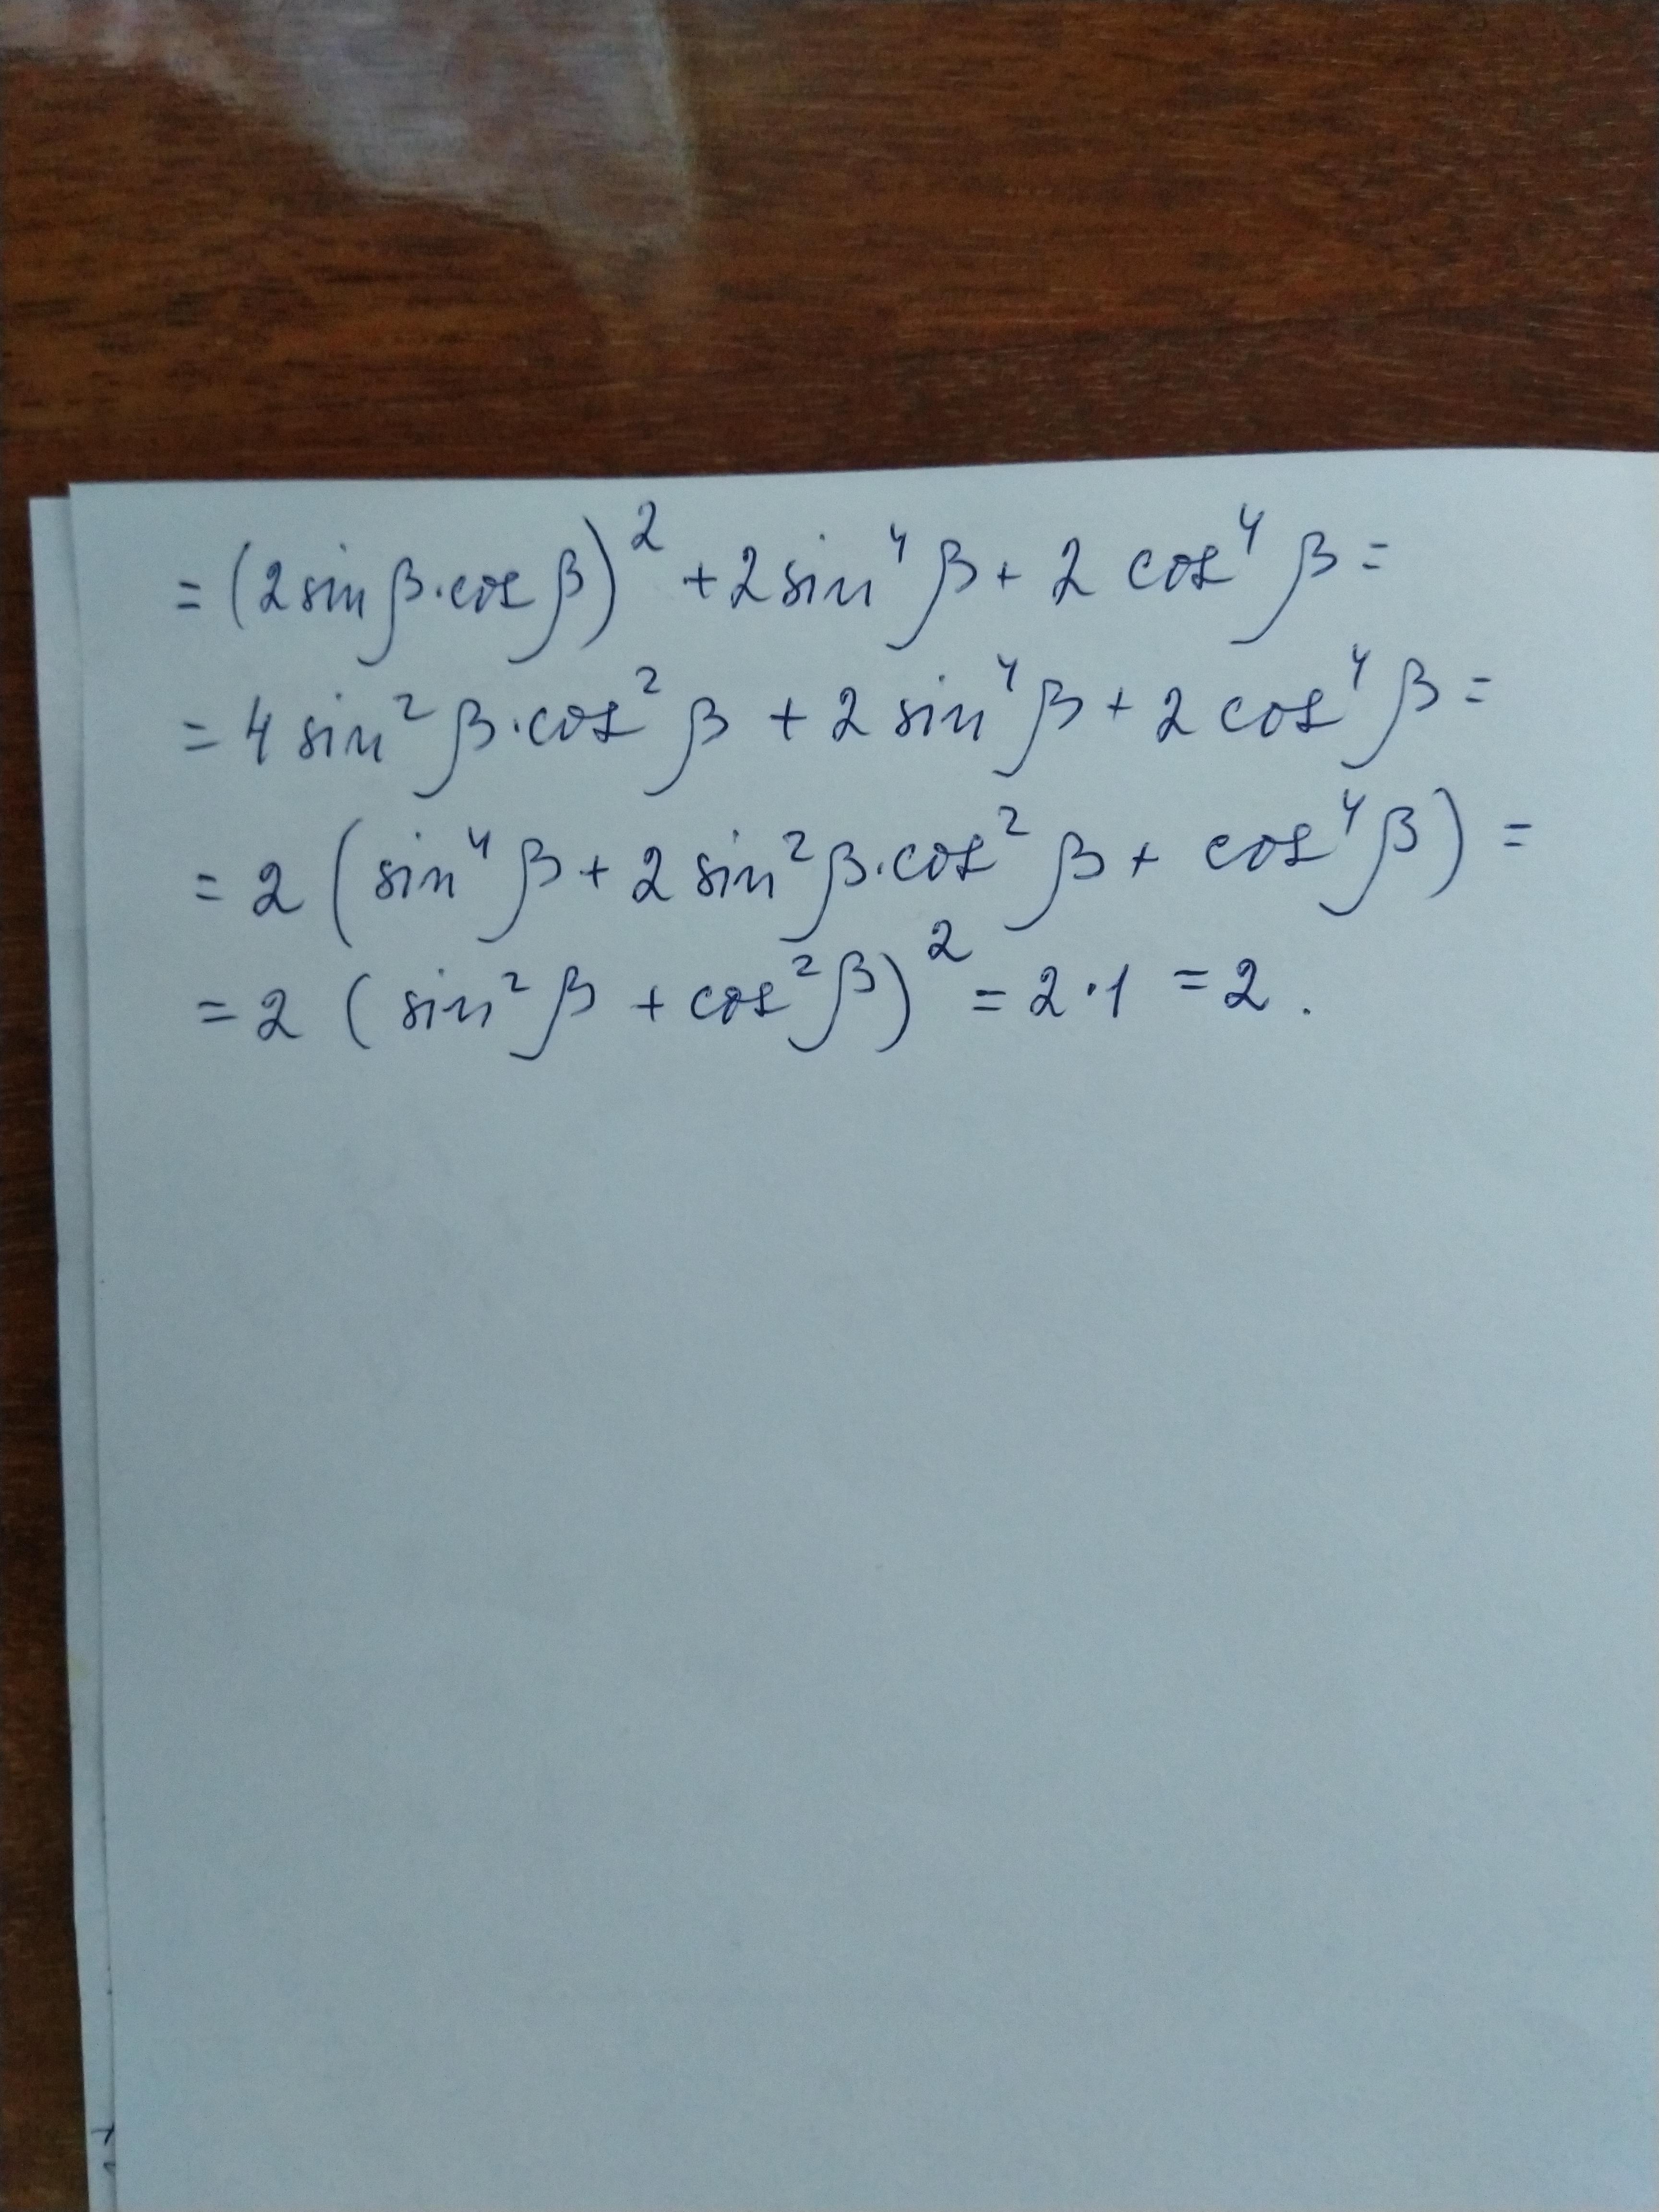 = (2 sin β · cos β)² + 2 sin⁴ β + 2 cos⁴ β =
= 4 sin² β · cos² β + 2 sin⁴ β + 2 cos⁴ β =
= 2 (sin⁴ β + 2 sin² β · cos² β + cos⁴ β) =
= 2 (sin² β + cos² β)² = 2 · 1 = 2 .